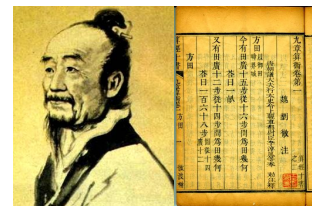 九章算術卷第一
魏 劉徽 注
唐朝議大夫行太史令上輕車都尉臣李淳風等奉 敕注釋
方田 以御田疇界域
今有田廣十五步從十六步問爲田幾何
荅曰一畝
又有田廣十二步從十四步問爲田幾何
荅曰一百六十八步 圖從十四廣十二
方田
方田